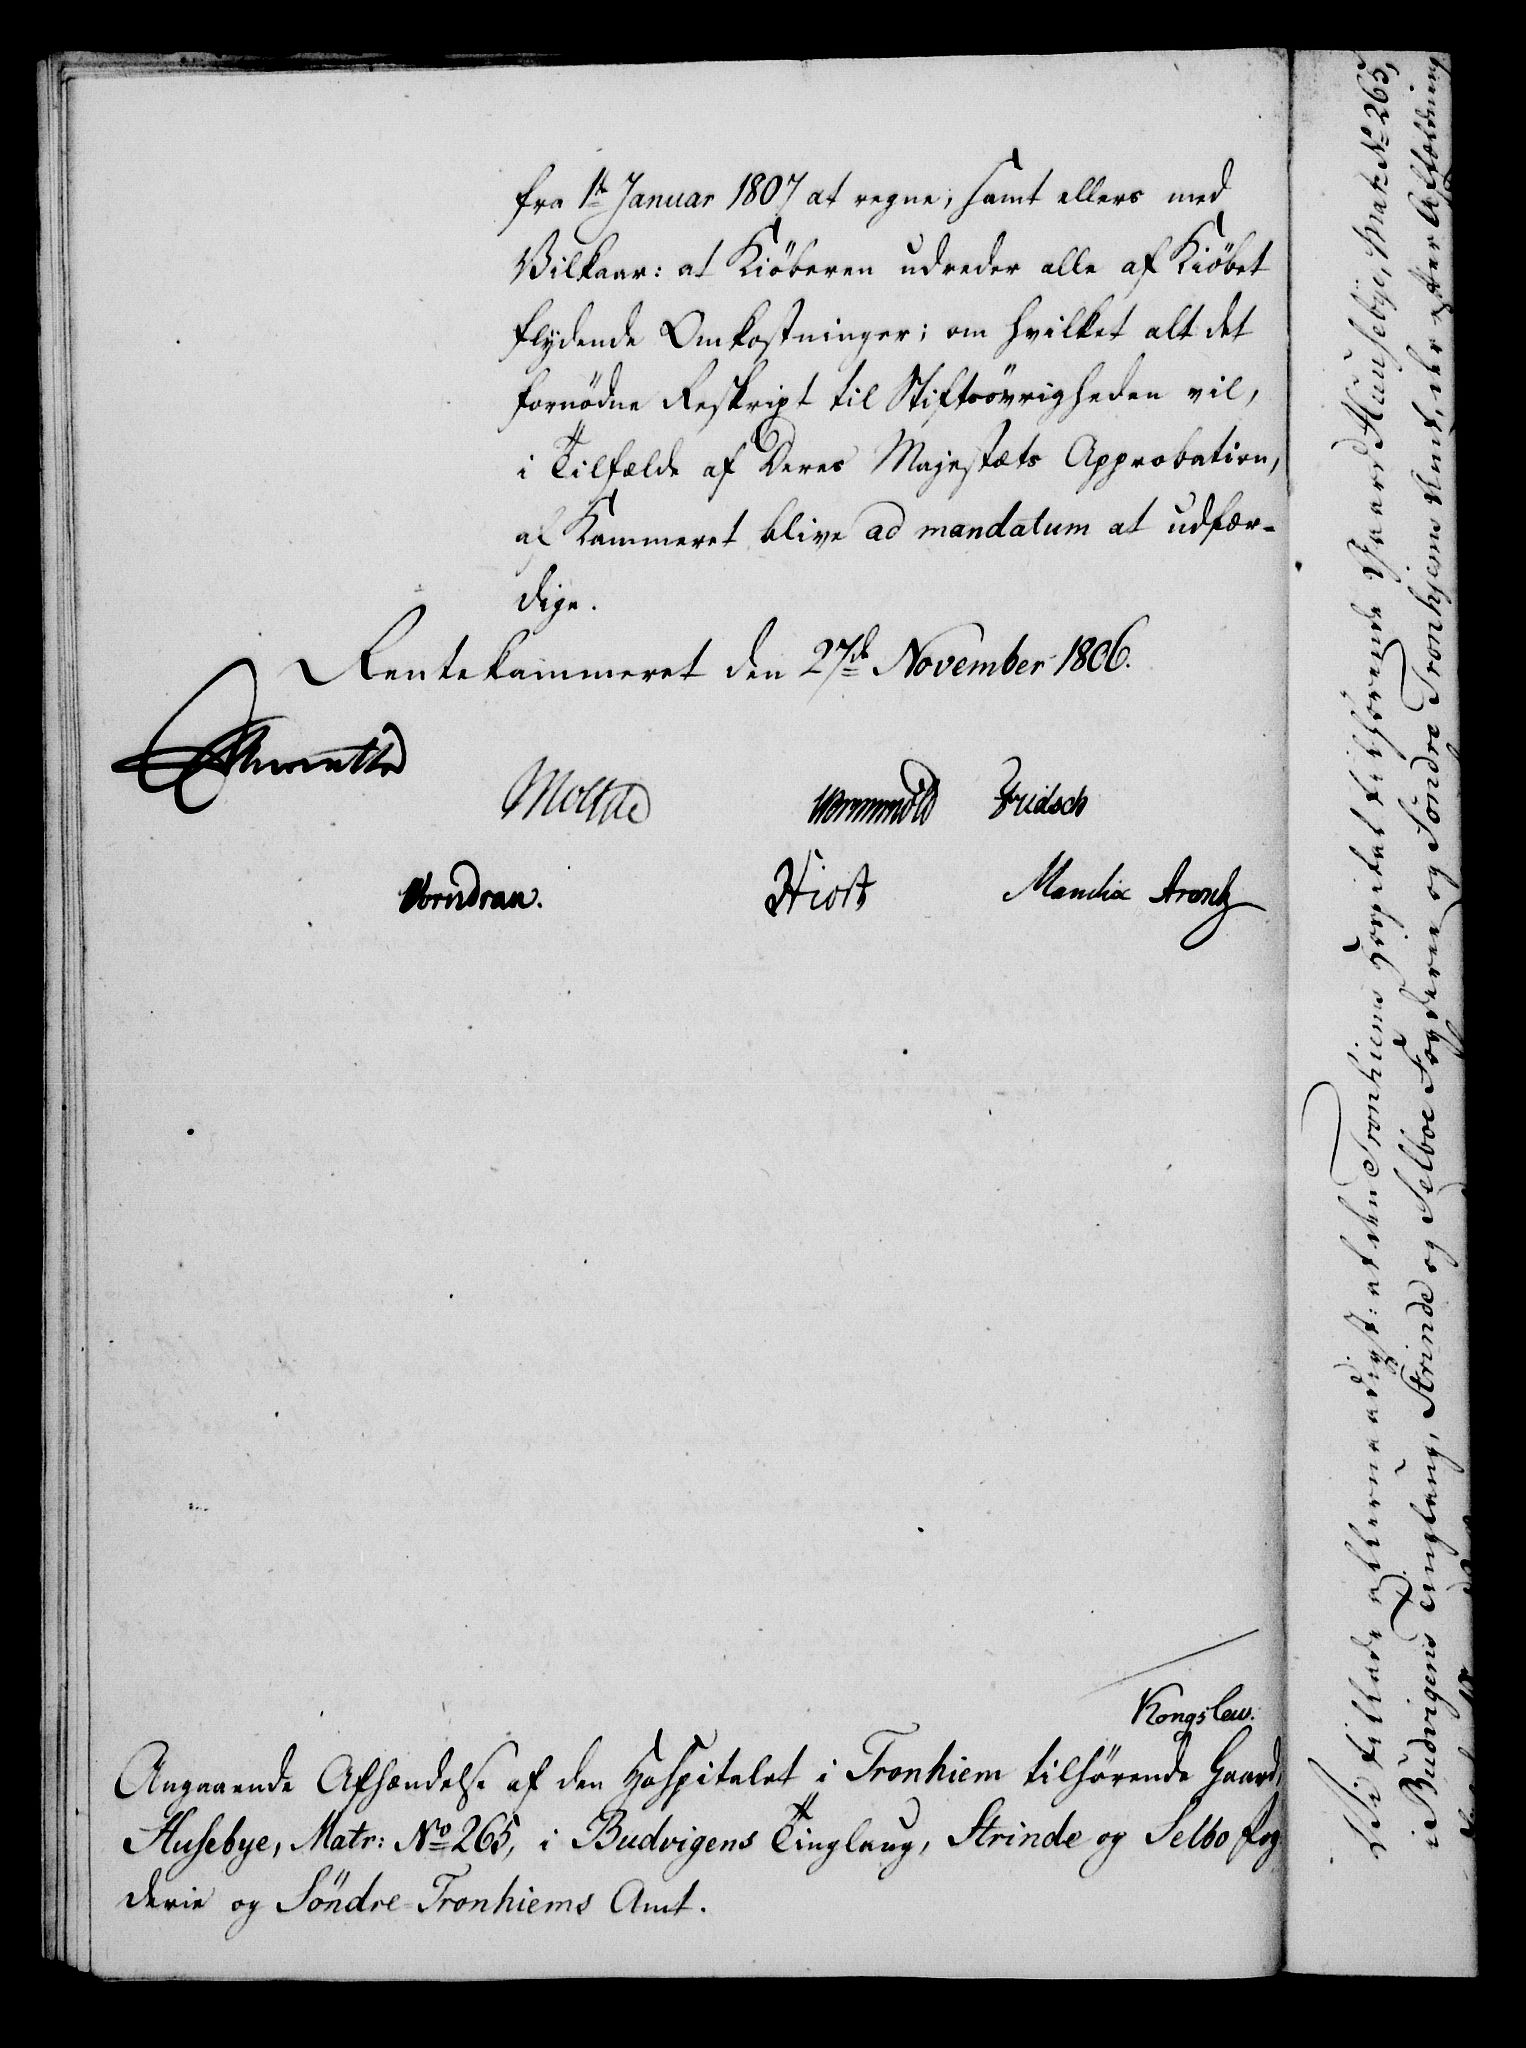 fra 1ste Januar 1807 at regne; samt ellers med
Vilkaar: at Kiöberen udreder alle af Kiöbet
flydende Omkostninger; om hvilket alt det
fornödne Reskript til Stiftsövrigheden vil,
i Tilfælde af Deres Majestæts Approbation,
af Kammeret blive ad mandatum at udfær-
dige.
Rentekammeret den 27de November 1806.
Moltke Wormskiold Fridsch
Wendran. Hiort Manthe Arentz
Kongslew.
Angaaende Afhændelse af den Hospitalet i Tronhiem tilhörende Gaard,
Husebye, Matr: No 265, i Budvigens Tinglaug, Strinde og Selbo Fog
derie og Söndre Tronhiems Amt.
Vi tillade allernaadigst: at den Tronhiems Hospital tilhörende Gaard Huusebye, Matr No 265,
i Budvigens Tinglaug, Strinde og Selboe Fogderie og Söndre Tronhjems Amt, der efter Afkældning